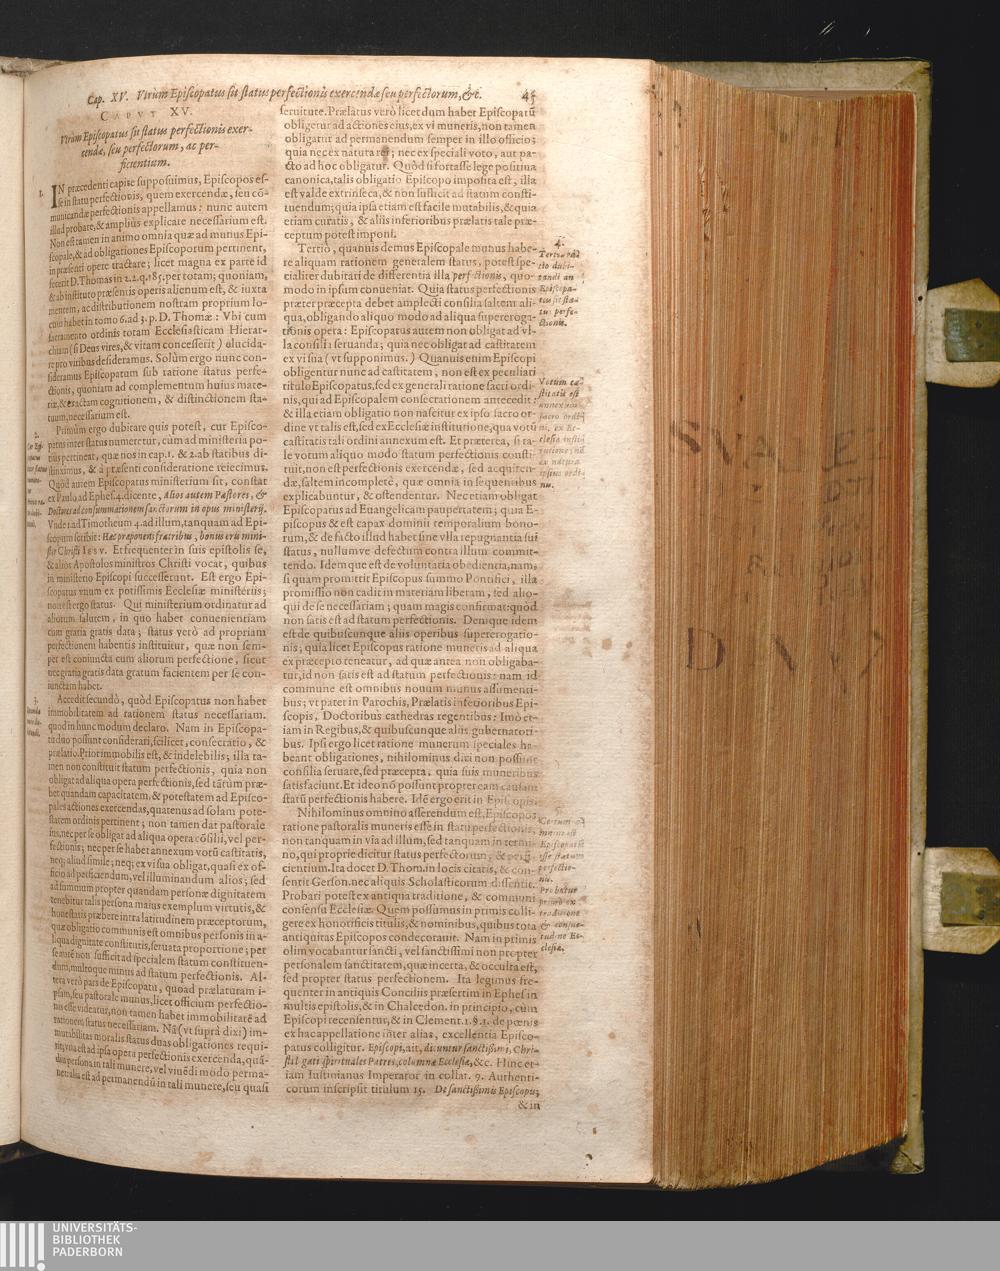 Cap. XV. Vtrùm Episcopatus sit status perfectionis exercendæ seu perfectorum, &c. 45
CAPVT XV.
Vtrùm Episcopatus sit status perfectionis exer-
cendæ, seu perfectorum, ac per-
ficientium.
1.
IN præcedenti capite supposuimus, Episcopos es-
se in statu perfectionis, quem exercendæ, seu cō-
municandæ perfectionis appellamus: nunc autem
illud probare, & ampliùs explicare necessarium est.
Non est tamen in animo omnia quæ ad munus Epi-
scopale, & ad obligationes Episcoporum pertinent,
in præsenti opere tractare; licet magna ex parte id
fecerit D. Thomas in 2.2.q.185. per totam; quoniam,
& ab instituto præsentis operis alienum est, & iuxta
mentem, ac distributionem nostram proprium lo-
cum habet in tomo 6. ad 3. p. D. Thomæ: Vbi cum
sacramento ordinis totam Ecclesiasticam Hierar-
chiam (si Deus vires, & vitam concesserit) elucida-
re pro viribus desideramus. Solùm ergo nunc con-
sideramus Episcopatum sub ratione status perfe-
ctionis, quoniam ad complementum huius mate-
riæ, & exactam cognitionem, & distinctionem sta-
tuum, necessarium est.
2.
Primùm ergo dubitare quis potest, cur Episco-
patus inter status numeretur, cùm ad ministeria po-
tiùs pertineat, quæ nos in cap. 1. & 2. ab statibus di-
stinximus, & à præsenti consideratione reiecimus.
Quòd autem Episcopatus ministerium sit, constat
ex Paulo ad Ephes. 4. dicente, Alios autem Pastores, &
Doctores ad consummationem sanctorum in opus ministerij.
Vnde 1. ad Timotheum 4. ad illum, tanquam ad Epi-
scopum scribit: Hæc proponens fratribus, bonus eris mini-
ster Christi IESV. Et frequenter in suis epistolis se,
& alios Apostolos ministros Christi vocat, quibus
in ministerio Episcopi successerunt. Est ergo Epi-
scopatus vnum ex potissimis Ecclesiæ ministeriis;
non est ergo status. Qui ministerium ordinatur ad
aliorum salutem, in quo habet conuenientiam
cum gratia gratis data; status verò ad propriam
perfectionem habentis instituitur, quæ non sem-
per est coniuncta cum aliorum perfectione, sicut
nec gratia gratis data gratum facientem per se con-
iunctam habet.
3.
Accedit secundò, quòd Episcopatus non habet
immobilitatem ad rationem status necessariam.
quod in hunc modum declaro. Nam in Episcopa-
tu duo possunt considerari, scilicet, consecratio, &
prælatio. Prior immobilis est, & indelebilis; illa ta-
men non constituit statum perfectionis, quia non
obligat ad aliqua opera perfectionis, sed tātum præ-
bet quandam capacitatem, & potestatem ad Episco-
pales actiones exercendas, quatenus ad solam pote-
statem ordinis pertinent; non tamen dat pastorale
ius, nec per se obligat ad aliqua opera cōsilii, vel per-
fectionis; nec per se habet annexum votū castitatis,
neq; aliud simile; neq; ex vi sua obligat, quasi ex of-
ficio ad perficiendum, vel illuminandum alios; sed
ad summum propter quandam personæ dignitatem
tenebitur talis persona maius exemplum virtutis, &
honestatis præbere intra latitudinem præceptorum,
quæ obligatio communis est omnibus personis in a-
liqua dignitate constitutis, seruata proportione; per
se autē non sufficit ad specialem statum constituen-
dum, multoque minus ad statum perfectionis. Al-
tera verò pars de Episcopatu, quoad prælaturam i-
psam, seu pastorale munus, licet officium perfectio-
nis esse videatur, non tamen habet immobilitatē ad
rationem status necessariam. Nā (vt suprà dixi) im-
mutabilitas moralis status duas obligationes requi-
rit, vna est ad ipsa opera perfectionis exercenda, quā-
diu persona in tali munere, vel viuēdi modo perma-
net: alia est ad permanendū in tali munere, seu quasi
seruitute. Prælatus verò licet dum habet Episcopatū
obligetur ad actiones eius, ex vi muneris, non tamen
obligatur ad permanendum semper in illo officio;
quia nec ex natura rei; nec ex speciali voto, aut pa-
cto ad hoc obligatur. Quòd si fortasse lege positiua
canonica, talis obligatio Episcopo imposita est, illa
est valde extrinseca, & non sufficit ad statum consti-
tuendum; quia ipsa etiam est facile mutabilis, & quia
etiam curatis, & aliis inferioribus prælatis tale præ-
ceptum potest imponi.
Tertiò, quamuis demus Episcopale munus habe-
re aliquam rationem generalem status, potest spe-
cialiter dubitari de differentia illa perfectionis, quo-
modo in ipsum conueniat. Quia status perfectionis
præter præcepta debet amplecti consilia saltem ali-
qua, obligando aliquo modo ad aliqua supereroga-
tionis opera: Episcopatus autem non obligat ad vl-
la consilia seruanda; quia nec obligat ad castitatem
ex vi sua (vt supponimus.) Quamuis enim Episcopi
obligentur nunc ad castitatem, non est ex peculiari
titulo Episcopatus, sed ex generali ratione sacri ordi-
nis, qui ad Episcopalem consecrationem antecedit:
& illa etiam obligatio non nascitur ex ipso sacro or-
dine vt talis est, sed ex Ecclesiæ institutione, qua votū
castitatis tali ordini annexum est. Et præterea, si ta-
le votum aliquo modo statum perfectionis consti-
tuit, non est perfectionis exercendæ, sed acquiren-
dæ, saltem incompletè, quæ omnia in sequentibus
explicabuntur, & ostendentur. Nec etiam obligat
Episcopatus ad Euangelicam paupertatem; quia E-
piscopus & est capax dominii temporalium bono-
rum, & de facto illud habet sine vlla repugnantia sui
status, nullumve defectum contra illum commit-
tendo. Idem que est de voluntaria obedientia, nam,
si quam promittit Episcopus summo Pontifici, illa
promissio non cadit in materiam liberam, sed alio-
qui de se necessariam; quam magis confirmat: quòd
non satis est ad statum perfectionis. Denique idem
est de quibuscunque aliis operibus supererogatio-
nis; quia licet Episcopus ratione muneris ad aliqua
ex præcepto teneatur, ad quæ antea non obligaba-
tur, id non satis est ad statum perfectionis: nam id
commune est omnibus nouum munus assumenti-
bus; vt pater in Parochis, Prælatis inferioribus Epi-
scopis, Doctoribus cathedras regentibus: Imò et-
iam in Regibus, & quibuscunque aliis gubernatori-
bus. Ipsi ergo licet ratione munerum speciales ha-
beant obligationes, nihilominus dixi non possunt
consilia seruare, sed præcepta, quia suis muneribus
satisfaciunt. Et ideo nō possunt propter eam causam
statū perfectionis habere. Idē ergo erit in Episcopis.
Nihilominus omnino asserendum est, Episcopos
ratione pastoralis muneris esse in statu perfectionis,
non tanquam in via ad illum, sed tanquam in termi-
no, qui proprie dicitur status perfectorum, & perfi-
cientium. Ita docet D. Thom. in locis citatis, & con-
sentit Gerson. nec aliquis Scholasticorum dissentit.
Probari potest ex antiqua traditione, & communi
consensu Ecclesiæ. Quem possumus in primis colli-
gere ex honorificis titulis, & nominibus, quibus tota
antiquitas Episcopos condecorauit. Nam in primis
olim vocabantur sancti, vel sanctissimi non propter
personalem sanctitatem, quæ incerta, & occulta est,
sed propter status perfectionem. Ita legimus fre-
quenter in antiquis Conciliis præsertim in Ephesin
multis epistolis, & in Chalcedon. in principio, cum
Episcopi recensentur, & in Clement. 1. §. 1. de pœnis
ex hac appellatione inter alias, excellentia Episco-
patus colligitur. Episcopi, ait, dicuntur sanctissimi, Chri-
sti legati spirituales Patres, columnæ Ecclesiæ, &c. Hinc et-
iam Iustinianus Imperator in collat. 9. Authenti-
corum inscripsit titulum 15. De sanctissimis Episcopis;
& in
4.
Tertia ra-
tio dubi-
tandi an
Episcopa-
tus sit sta-
tus perfe-
ctionis.
Votum ca-
stitatis est
annexum
sacro ordi-
ni, ex Ec-
clesiæ insti-
tutione, nō
ex natura
ipsius ordi-
nis.
Episcopatū
esse statum
perfectio-
nis.
Probatur
primò ex
traditione
& consue-
tudine Ec-
clesiæ.
UNIVERSITÄTS-
BIBLIOTHEK
PADERBORN